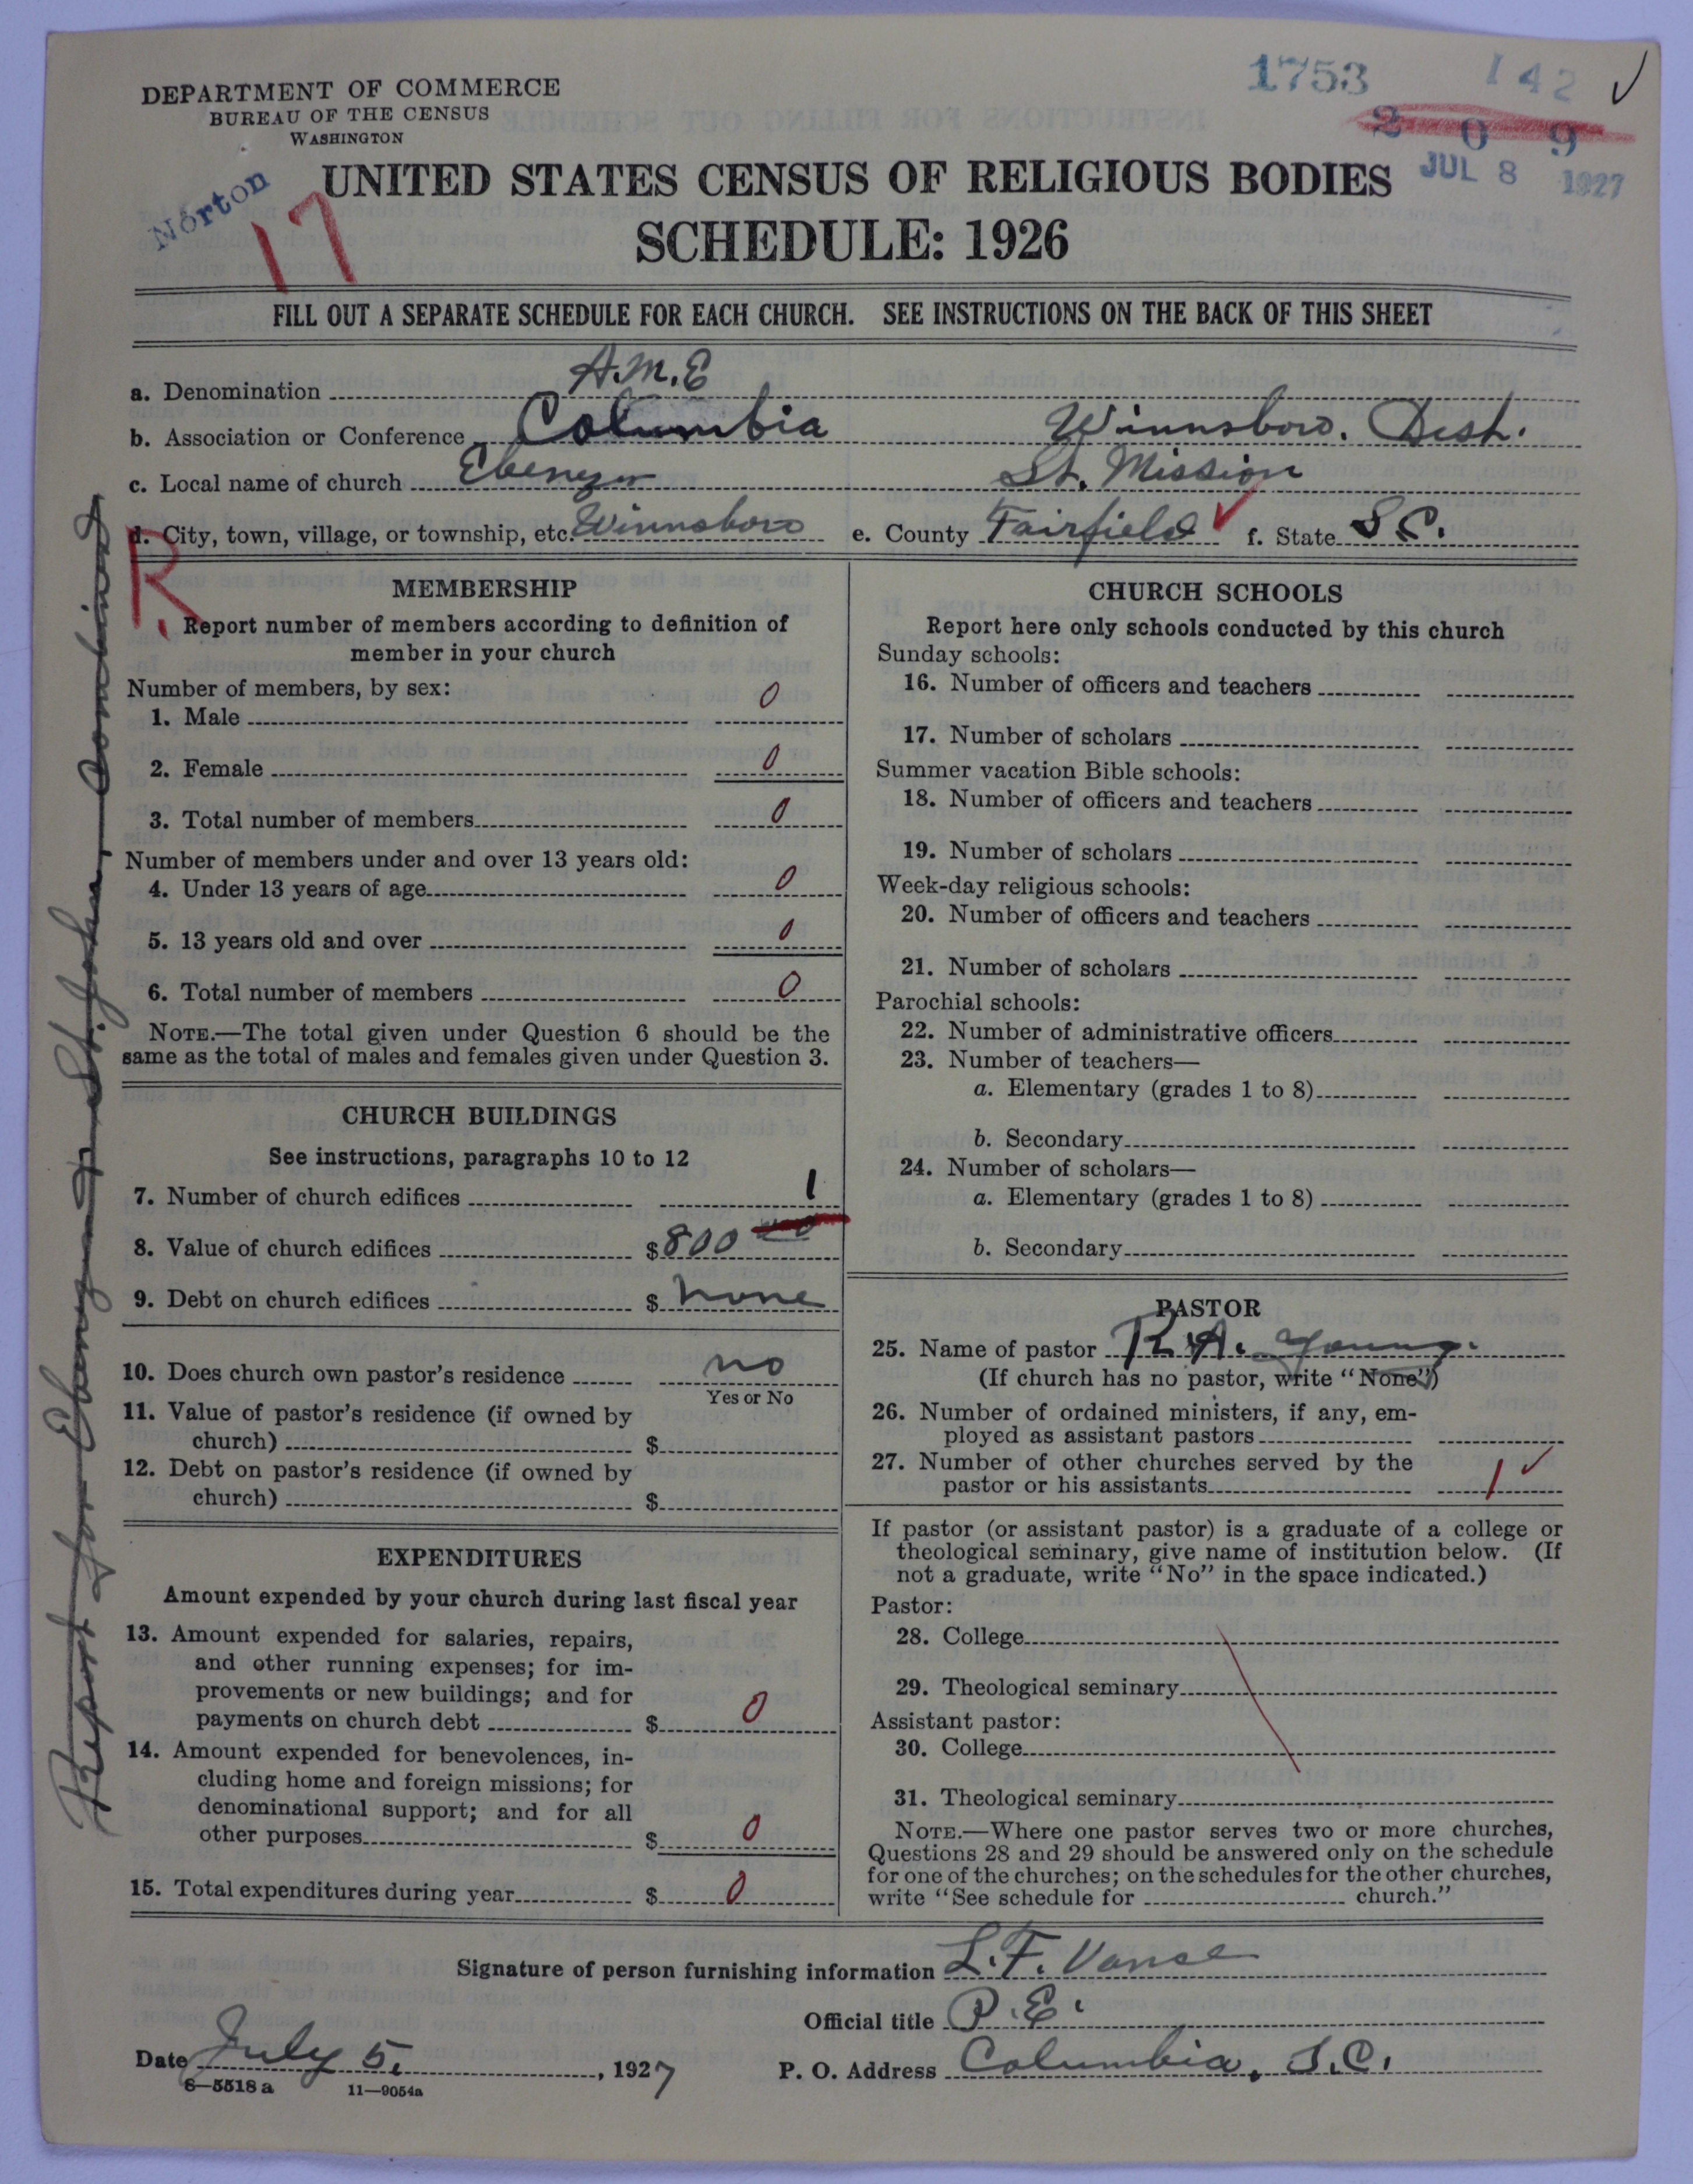 DEPARTMENT OF COMMERCE
BUREAU OF THE CENSUS
WASHINGTON
1753 142
2 0 9
JUL 8 1927
Norton
17
UNITED STATES CENSUS OF RELIGIOUS BODIES
SCHEDULE: 1926
FILL OUT A SEPARATE SCHEDULE FOR EACH CHURCH. SEE INSTRUCTIONS ON THE BACK OF THIS SHEET
a. Denomination A.M.E
b. Association or Conference Columbia Winnsboro. Dist.
c. Local name of church Ebenezer St. Mission
d. City, town, village, or township, etc. Winnsboro e. County Fairfield f. State S.C.
R
MEMBERSHIP
Report number of members according to definition of
member in your church
Number of members, by sex:
1. Male 0
2. Female 0
3. Total number of members 0
Number of members under and over 13 years old:
4. Under 13 years of age 0
5. 13 years old and over 0
6. Total number of members 0
NOTE.—The total given under Question 6 should be the
same as the total of males and females given under Question 3.
CHURCH BUILDINGS
See instructions, paragraphs 10 to 12
7. Number of church edifices 1
8. Value of church edifices $800
9. Debt on church edifices $ None
10. Does church own pastor's residence no
Yes or No
11. Value of pastor's residence (if owned by
church) $
12. Debt on pastor's residence (if owned by
church) $
EXPENDITURES
Amount expended by your church during last fiscal year
13. Amount expended for salaries, repairs,
and other running expenses; for im-
provements or new buildings; and for
payments on church debt $ 0
14. Amount expended for benevolences, in-
cluding home and foreign missions; for
denominational support; and for all
other purposes $ 0
15. Total expenditures during year $ 0
CHURCH SCHOOLS
Report here only schools conducted by this church
Sunday schools:
16. Number of officers and teachers
17. Number of scholars
Summer vacation Bible schools:
18. Number of officers and teachers
19. Number of scholars
Week-day religious schools:
20. Number of officers and teachers
21. Number of scholars
Parochial schools:
22. Number of administrative officers
23. Number of teachers—
a. Elementary (grades 1 to 8)
b. Secondary
24. Number of scholars—
a. Elementary (grades 1 to 8)
b. Secondary
PASTOR
25. Name of pastor R.A. Young.
(If church has no pastor, write "None")
26. Number of ordained ministers, if any, em-
ployed as assistant pastors
27. Number of other churches served by the
pastor or his assistants 1
If pastor (or assistant pastor) is a graduate of a college or
theological seminary, give name of institution below. (If
not a graduate, write "No" in the space indicated.)
Pastor:
28. College
29. Theological seminary
Assistant pastor:
30. College
31. Theological seminary
NOTE.—Where one pastor serves two or more churches,
Questions 28 and 29 should be answered only on the schedule
for one of the churches; on the schedules for the other churches,
write "See schedule for church."
Signature of person furnishing information L.F. Vance
Official title P.E.
Date July 5, 1927 P. O. Address Columbia, S.C.
6—5518a 11—9054a
Report for Ebenezer & St. John combined